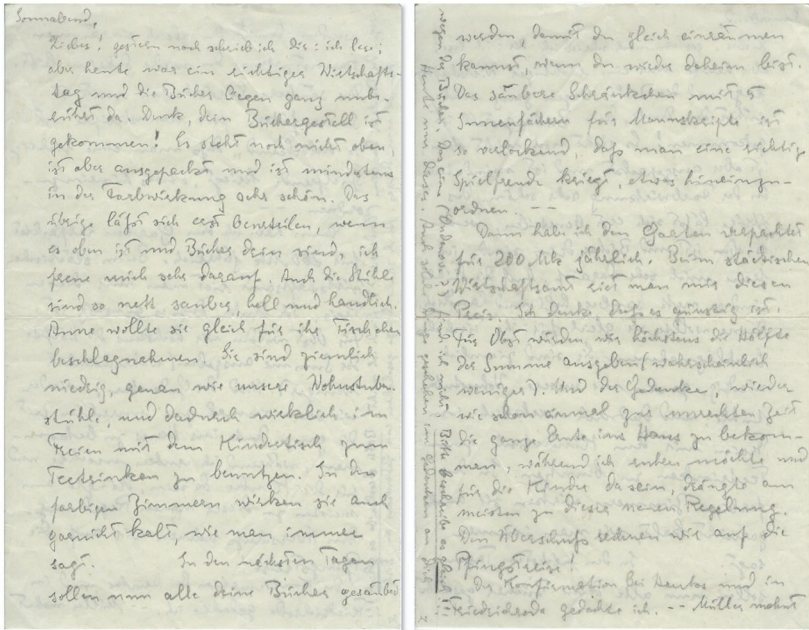 Sonnabend,
Liebes! gestern noch schrieb ich dir: ich lese;
aber heute war ein richtiger Wirtschafts-
tag und die Bücher liegen ganz unbe-
rührt da. Denk, dein Büchergestell ist
gekommen! Es steht noch nicht oben,
ist aber ausgepackt und ist mindestens
in der Farbwirkung sehr schön. Das
übrige läßt sich erst beurteilen, wenn
es oben ist und Bücher drin sind, ich
freue mich sehr darauf. Auch die Stühle
sind so nett sauber, hell und handlich.
Anne wollte sie gleich für ihr Tischchen
beschlagnehmen. Sie sind ziemlich
niedrig, genau wie unsere Wohnstuben-
stühle, und dadurch wirklich im
Freien mit dem Kindertisch zum
Teetrinken zu benutzen. In den
farbigen Zimmern wirken sie auch
garnicht kalt, wie man immer
sagt. In den nächsten Tagen
sollen nun alle deine Bücher gesäubert
werden, damit du gleich einräumen
kannst, wenn du wieder daheim bist.
Das saubere Schränkchen mit 5
Innenfächern für Manuskripte ist
so verlockend, daß man eine richtige
Spielfreude kriegt, etwas hineinzu-
ordnen. --
Dann hab ich den Garten verpachtet
für 200 Mk jährlich. Beim städtischen
Wirtschaftsamt riet man mir diesen
Preis. Ich denke, daß es günstig ist.
Für Obst würden wir höchstens die Hälfte
der Summe ausgeben (wahrscheinlich
weniger). Und der Gedanke, wieder
wie schon einmal zur unrechten Zeit
die ganze Ernte ins Haus zu bekom-
men, während ich ruhen möchte und
für die Kinder da sein, drängte am
meisten zu dieser neuen Regelung.
Den Überschuß rechnen wir auf die
Pfingstreise!
Der Konfirmation bei und in
Friedrichroda gedachte ich. -- Müller mahnt
wegen der Bücher. Das eine find ich nicht. Bitte beschreibe es gleich!!
Heute nur dieses. Und viele gute Gedanken an Dich